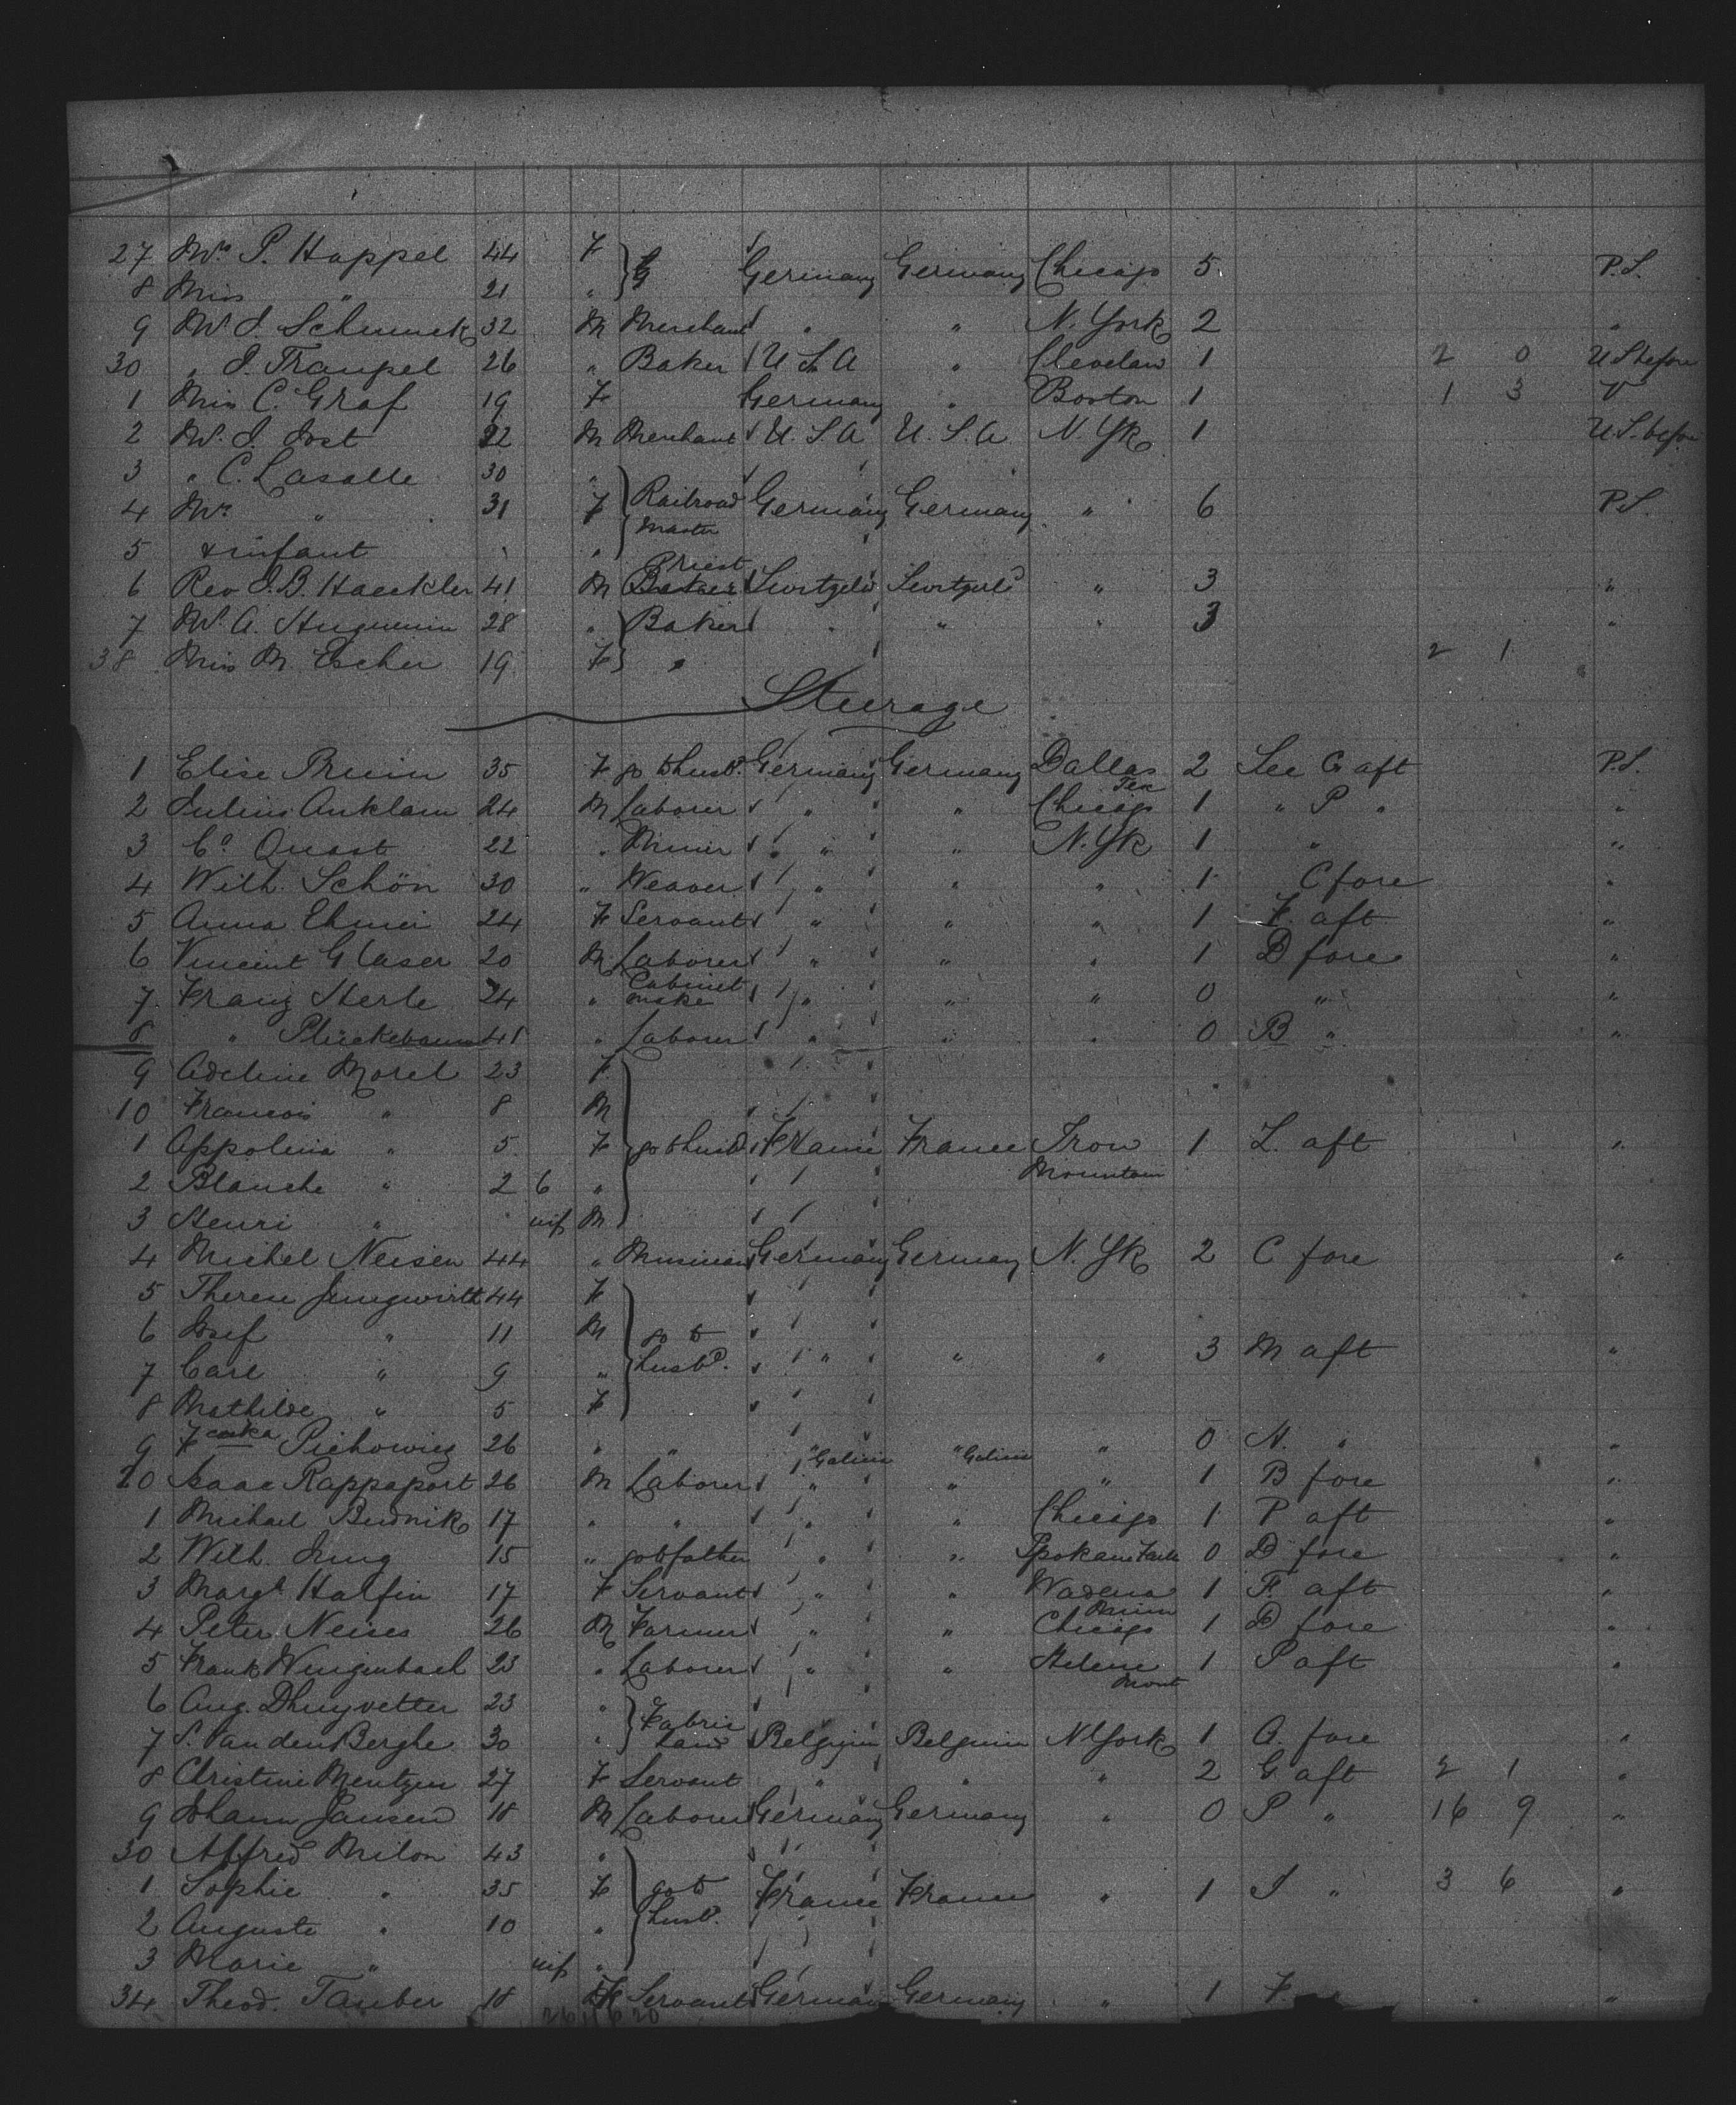 27 Mrs P. Happel 44 F Germany Germany Chicago 5 P.S.
8 Miss " 21 "
9 Mr J. Schmuck 32 M Merchant " " N. York 2 "
30 " J. Traupel 26 " Baker U S A " Cleveland 1 2 0 U S before
1 Miss C. Graf 19 F Germany " Boston 1 1 3
2 Mr. J. Jost 22 M Merchant U. S. A U. S. A N. Yk 1 U.S. before
3 " C. Lasalle 30 "
4 Mrs " 31 F Railroad Master Germany Germany " 6 P.S.
5 & infant "
6 Rev J. B. Haeckler 41 M Priest Switzeld Switzerld " 3 "
7 Mr. A. Huguenin 28 " Baker " " " 3 "
38 Miss M. Escher 19 F " 2 1 "
Steerage
1 Elise 35 F go to husbd. Germany Germany Dallas Tex 2 See G aft P.S.
2 Julius Anklam 24 M Laborer " " Chicago 1 " P " "
3 Co Quast 22 " Miner " " N. Yk 1 " "
4 Wilh. Schön 30 " Weaver " " " 1 C fore "
5 Anna 24 F Servant " " " 1 F. aft "
6 Vincent Glaser 20 M Laborer " " " 1 D fore "
7 Franz Herle 24 " Cabinet make " " " 0 " "
8 " Plückebaum 41 " Laborer " " " 0 B " "
9 Adeline Morel 23 F
10 Francois " 8 M
1 Appolina " 5 F go to husbd France France Iron Mountain 1 L. aft "
2 Blanche " 2 6 "
3 Henri " inf M
4 Michel Neisen 44 " Musician Germany Germany N. Yk 2 C fore "
5 Therese Jungwirth 44 F
6 Josef " 11 M go to
7 Carl " 9 " husbd. " " " 3 M aft "
8 Mathilde " 5 F
9 Piehowicz 26 " " " Galicia " Galicia " 0 N. " "
20 Isaac Rappaport 26 M Laborer " " " 1 B fore "
1 Michael Budnik 17 " " " " Chicago 1 P aft "
2 Wilh. Jung 15 " go to father " " Spokane Falls 0 D fore "
3 Margt Halfin 17 F Servant " " Wadena 1 F aft "
4 Peter Neises 26 M Farmer " " Chicago 1 D fore "
5 Frank Wingenbach 23 " Laborer " " Helena Mont 1 P aft "
6 Aug. Dhuyvetter 23 "
7 S. Van den Berghe 30 " Belgium Belgium N York 1 A. fore "
8 Christine Mentzen 27 F Servant " " " 2 G aft 2 1 "
9 Johann Jansen 18 M Laborer Germany Germany " 0 P " 16 9 "
30 Alfred Milon 43 "
1 Sophie " 35 F go to husbd. France France " 1 " 3 6 "
2 Auguste " 10 "
3 Marie " inf "
34 Theod. Tauber 18 F Servant Germany Germany " 1 F. "